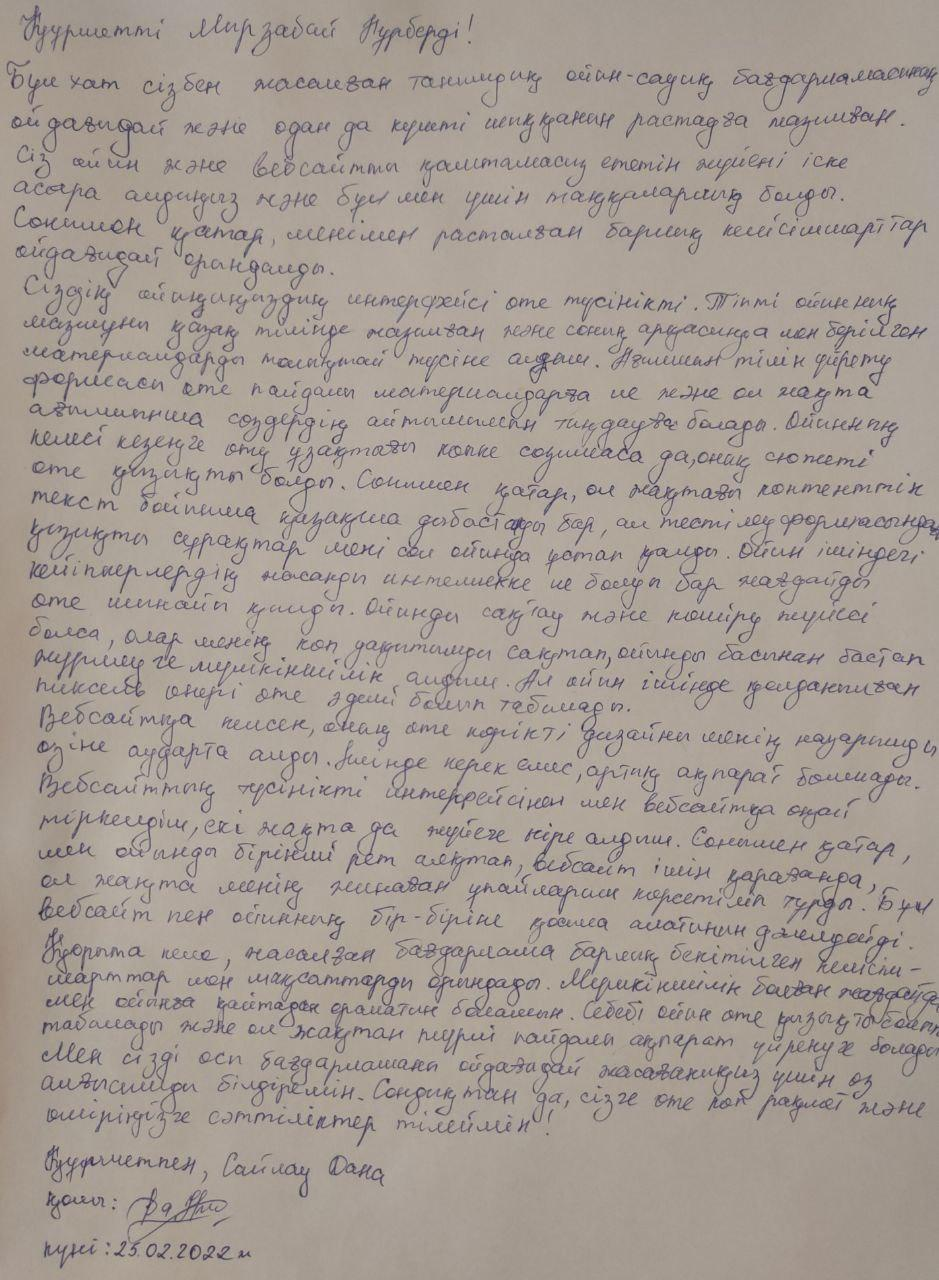 Құрметті Мирзабай Нұрберді!
Бұл хат сізбен жасалған танымдық ойын-сауық бағдарламасының
ойдағыдай және одан да күшті шыққанын растадға жазылған.
Сіз ойын және вебсайтты қамтамасыз ететін жүйені іске
асыра алдыңыз және бұл мен үшін таңқаларлық болды.
Сонымен қатар, менімен расталған барлық келісімшарттар
ойдағыдай орындалды.
Сіздің ойыңыңыздың интерфейсі өте түсінікті. Тіпті ойынның
мазмұны қазақ тілінде жазылған және соның арқасында мен берілген
материалдарды толықтай түсіне алдым. Ағылшын тілін үйрету
формасы өте пайдалы материалдарға ие және ол жақта
ағылшынша сөздердің айтылымын тыңдауға болады. Ойынның
келесі кезеңге өту ұзақтағы көпке созылмаса да, оның сюжеті
өте қызықты болды. Сонымен қатар, ол жақтағы контенттік
текст бойынша қазақша дыбыстауды бар, ал тестілеу формасында
қызықты сұрақтар мені сол ойында ұстап қалды. Ойын ішіндегі
кейіпкерлердің жасанды интеллекке ие болуы бар жағдайды
өте шынайы қылды. Ойынды сақтау және көшіру жүйесі
болса, олар менің көп уақытымды сақтап, ойынды басынан бастап
жүрмеуге мүмкіншілік алдым. Ал ойын ішінде қолданылған
пиксель өнері өте әдемі болып табылады.
Вебсайтқа келсек, оның өте көрікті дизайны менің назарымды
өзіне аударта алды. Ішінде керек емес, артық ақпарат болмады.
Вебсайттың түсінікті интерфейсінен мен вебсайтқа оңай
тіркелдім, екі жақта да жүйеге кіре алдым. Сонымен қатар,
мен ойынды бірінші рет аяқтап, вебсайт ішін қарағанда,
ол жақта менің жинаған ұпайларым көрсетіліп тұрды. Бұл
вебсайт пен ойынның бір-біріне қосыла алатынын дәлелдейді.
Қорыта келе, жасалған бағдарлама барлық бекітілген келісім-
шарттар мен мақсаттарды орындады. Мүмкіншілік болған жағдайда
мен ойынға қайтадан оралатын боламын. Себебі ойын өте қызықты болып
табылады және ол жақтан түрлі пайдалы ақпарат үйренуге болады
Мен сізді осы бағдарламаны ойдағыдай жасағаныңыз үшін өз
алғысымды білдіремін. Сондықтан да, сізге өте көп рақмет және
өміріңізге сәттіліктер тілеймін!
Құрметпен, Сайлау Дана
қолы:
күні: 25.02.2022 ж